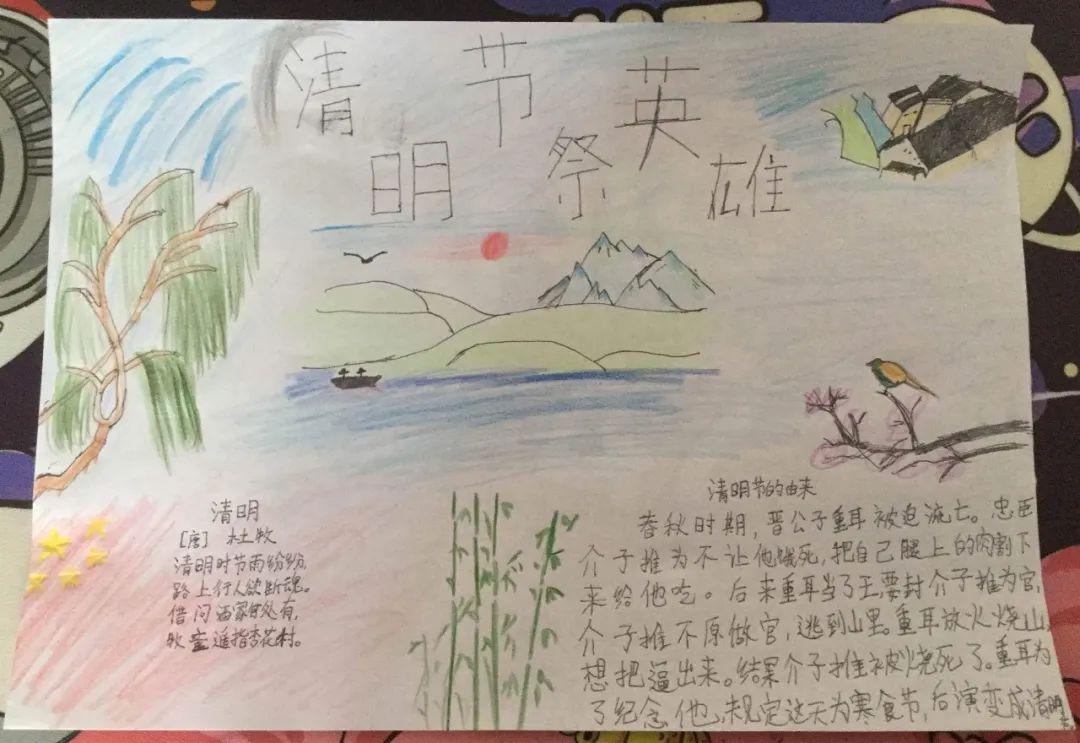 清明节祭英雄
清明
[唐] 杜牧
清明时节雨纷纷,
路上行人欲断魂。
借问酒家何处有,
牧童遥指杏花村。
清明节的由来
春秋时期,晋公子重耳被迫流亡。忠臣
介子推为不让他饿死,把自己腿上的肉割下
来给他吃。后来重耳当了王,要封介子推为官,
介子推不原做官,逃到山里。重耳放火烧山,
想把逼出来。结果介子推被烧死了。重耳为
了纪念他,规定这天为寒食节,后演变成清明